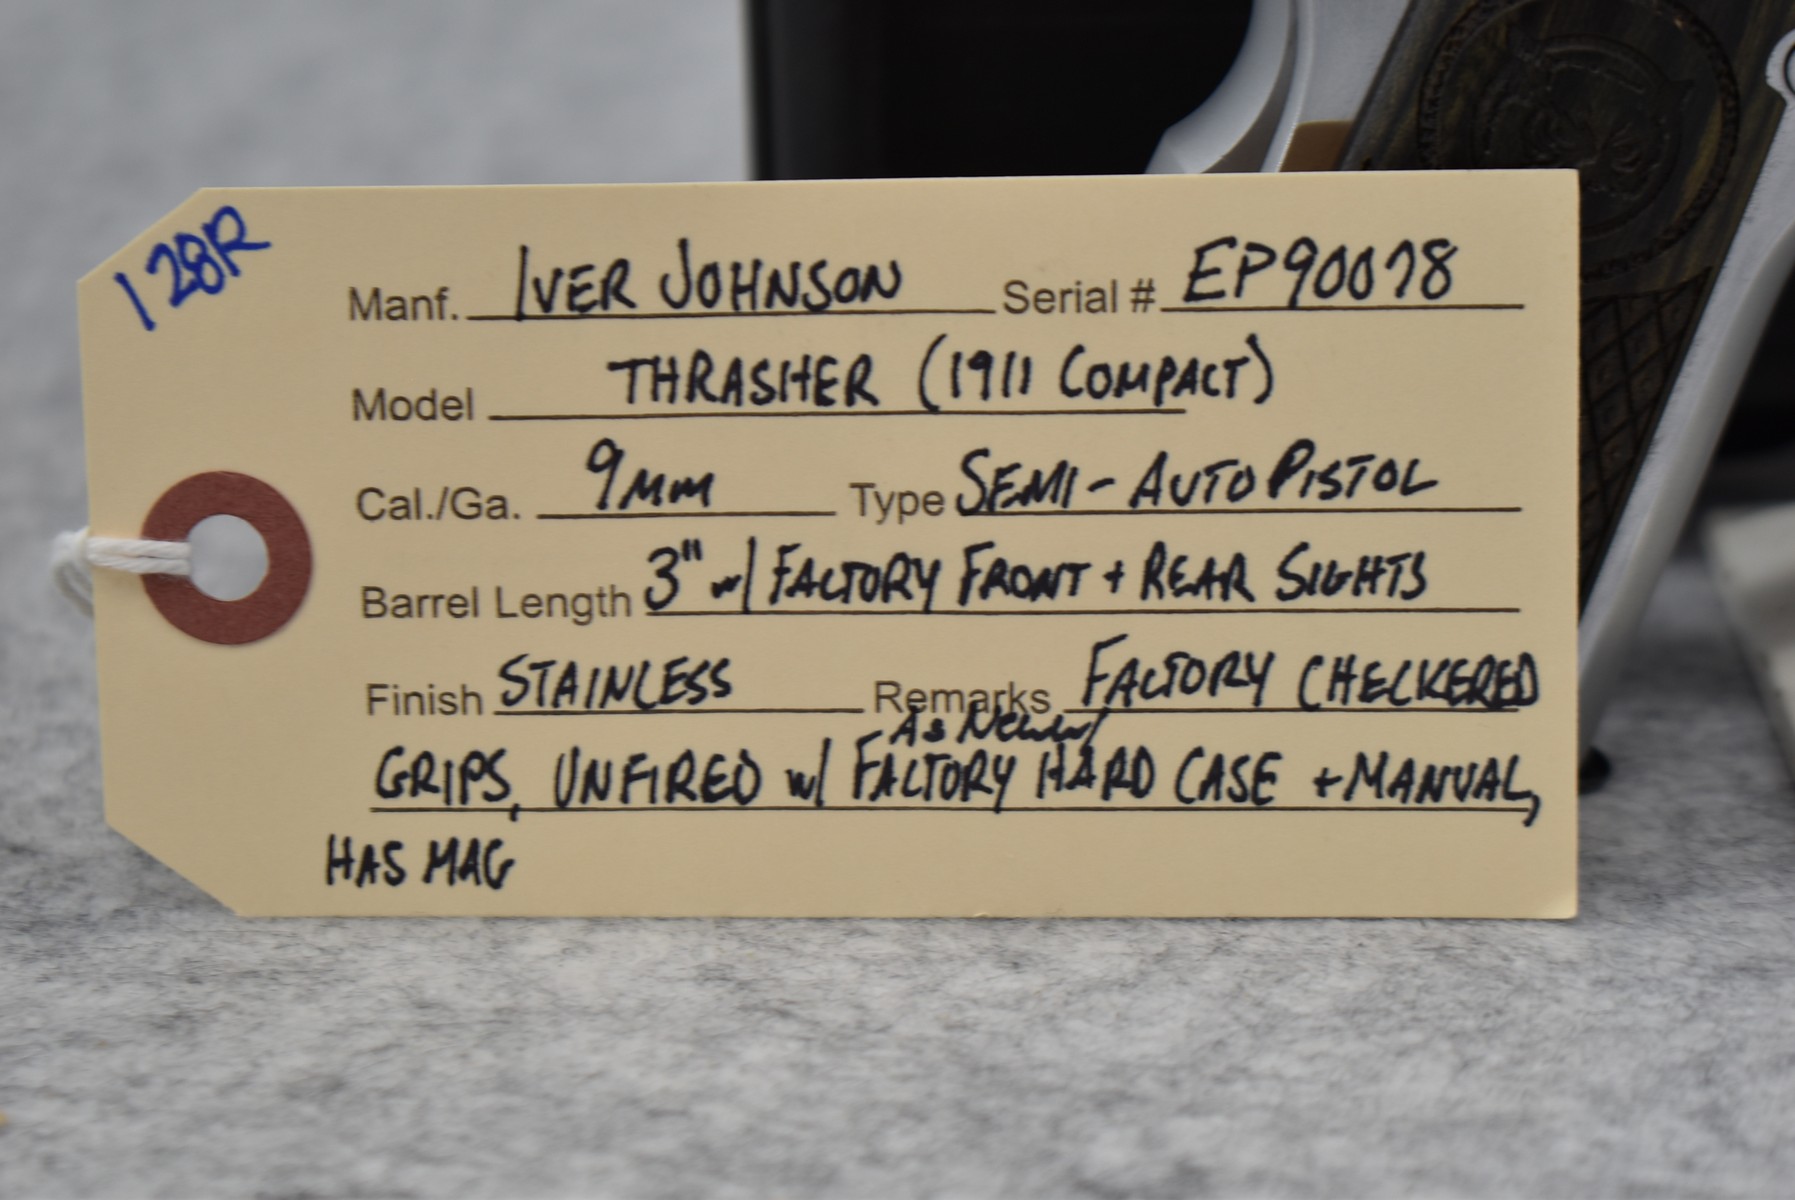 128R
Manf. IVER JOHNSON Serial # EP90078
Model THRASHER (1911 COMPACT)
Cal./Ga. 9mm Type SEMI-AUTO PISTOL
Barrel Length 3" w/ FACTORY FRONT + REAR SIGHTS
Finish STAINLESS Remarks FACTORY CHECKERED
As New w/
GRIPS, UNFIRED w/ FACTORY HARD CASE + MANUAL,
HAS MAG